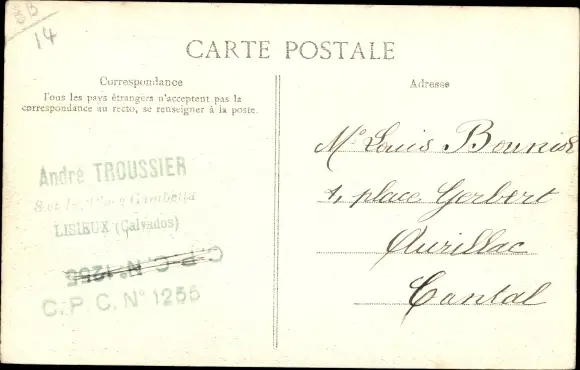 8B
14
CARTE POSTALE
Correspondance
Tous les pays étrangers n'acceptent pas la
correspondance au recto, se renseigner à la poste.
Adresse
André TROUSSIER
8 et Place Gambetta
LISIEUX (Calvados)
C.P.C. N° 1255
C.P.C. N° 1255
Mr Louis
1, place Gerbert
Aurillac
Cantal